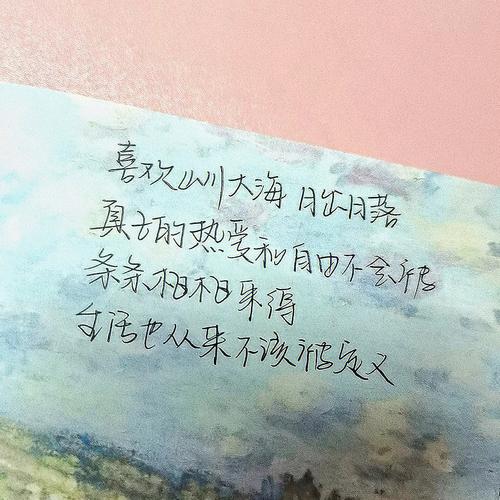 喜欢山川大海 日出日落
真正的热爱和自由不会被
条条相相来得
生活也从来不该被定义